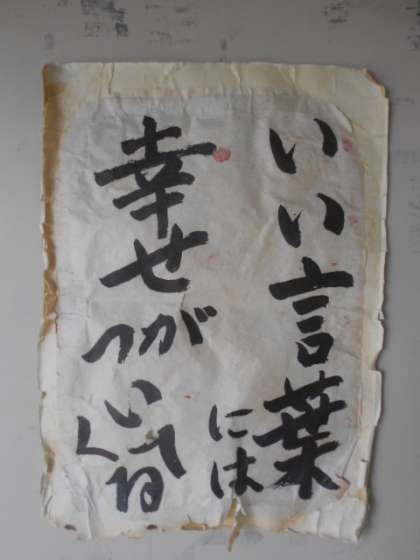 いい言葉
には
幸せが
ついてく